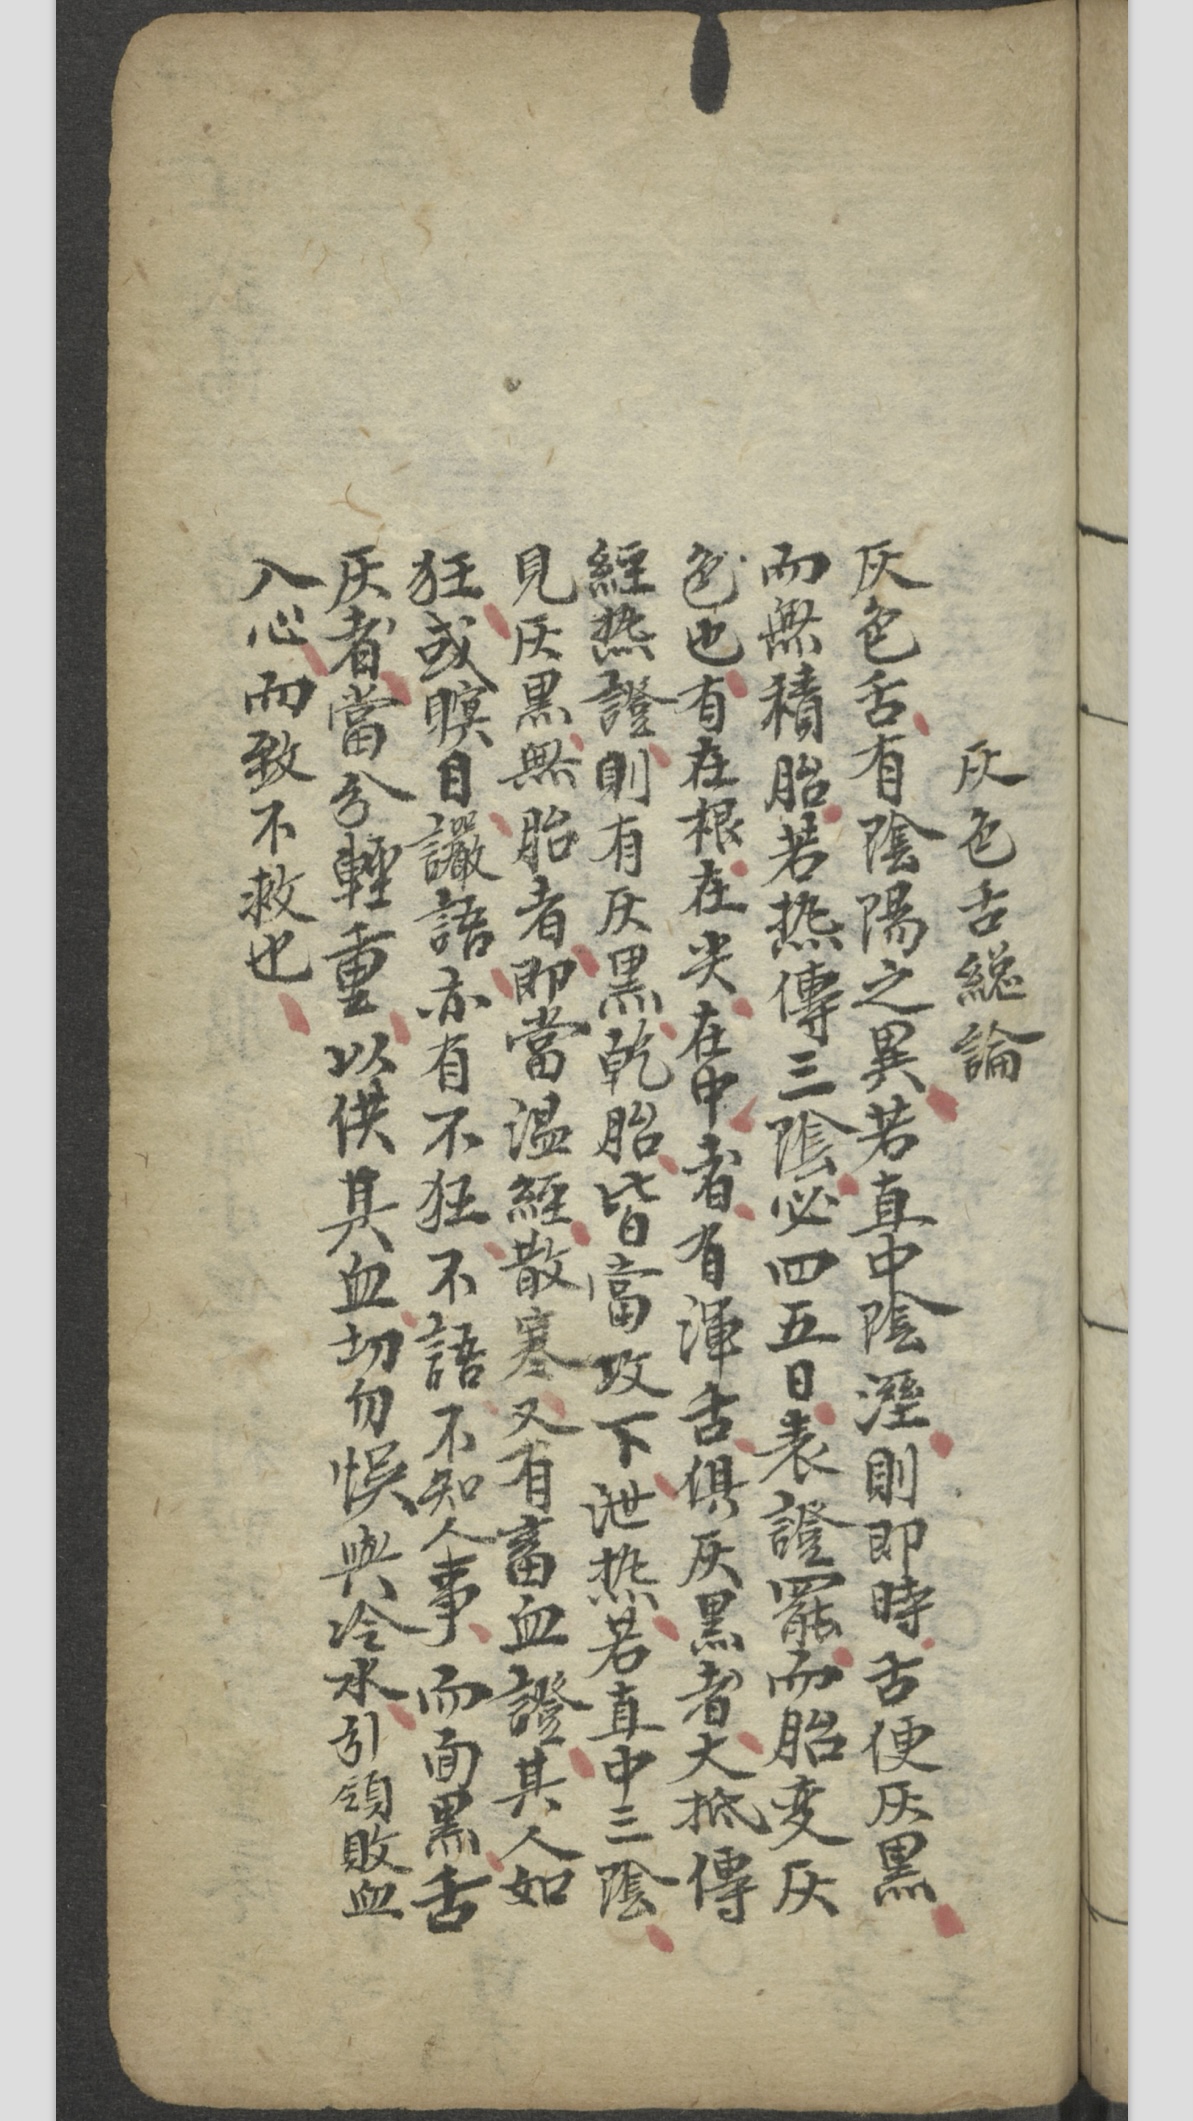 灰色舌総論
灰色舌有陰陽之異若直中陰溼則即時舌便灰黒
而無積胎若热傳三陰必四五日表證罷而胎変灰
色也有在根在尖在中者有渾舌俱灰黒者大抵傳
經热證則有灰黒乾胎皆當攻下泄热若直中三陰
見灰黒無胎者即當温經散寒又有畜血證其人如
狂或瞑目讝語亦有不狂不語不知人事而面黒舌
灰者當分輕重以供其血切勿悞與冷水引領敗血
入心而致不救也